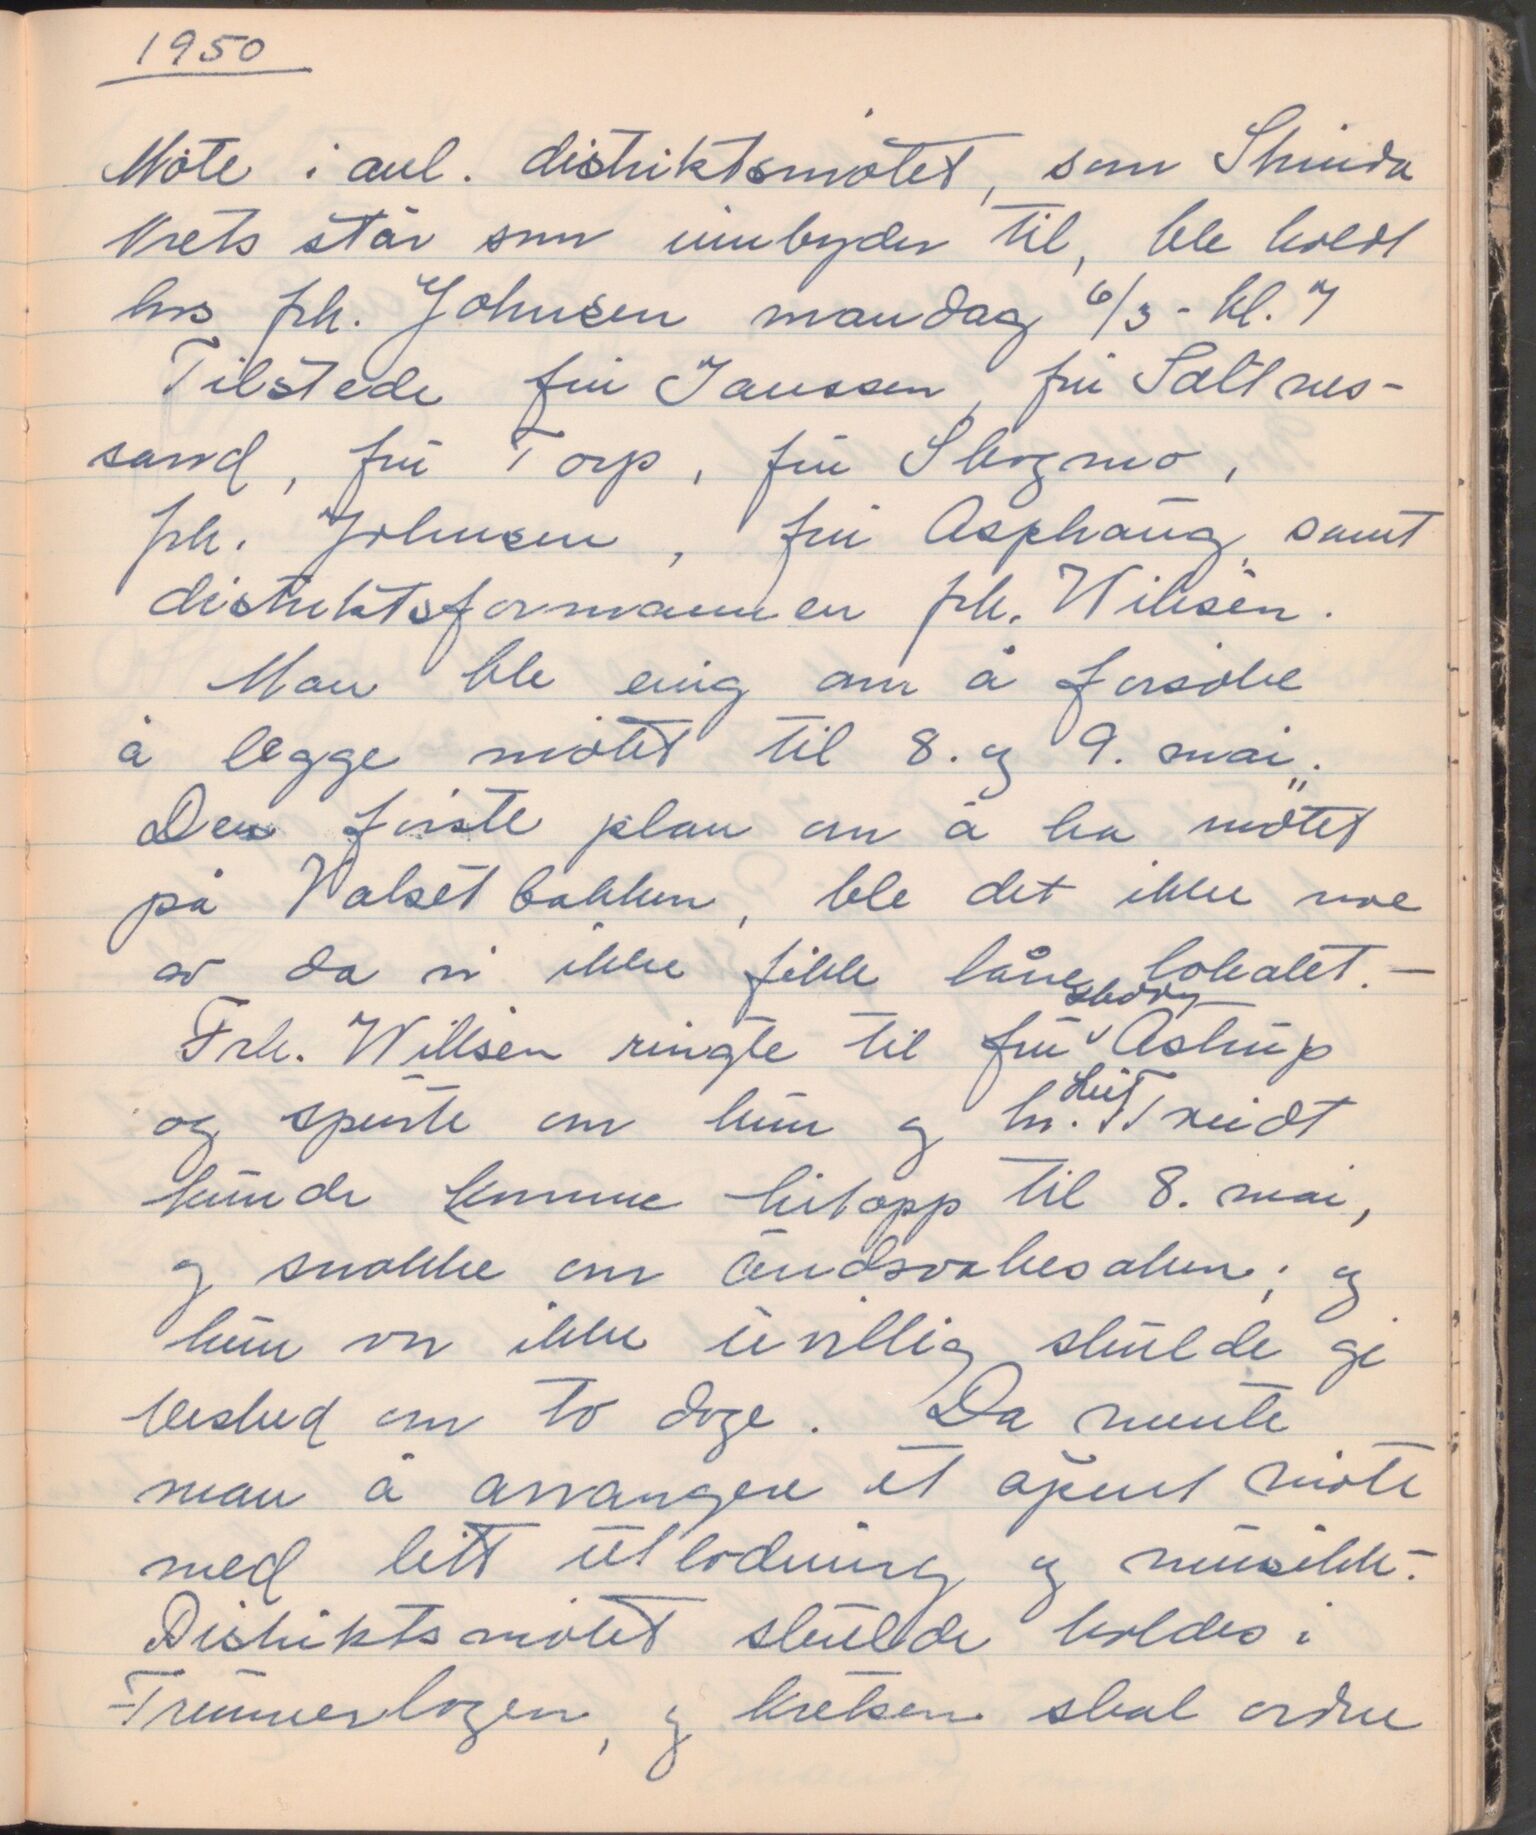 1950
Møte i anl. distriktsmøtet, som Strinda
krets står som innbyder til, ble holdt
hos frk. Johnsen mandag 6/3 - kl. 7
Tilstede fru Janssen, fru Saltnes-
sand, fru Torp, fru Skogmo,
frk. Johnsen, fru Asphaug, samt
distriktsformannen frk. Wilsén.
Man ble enig om å forsøke
å legge møtet til 8. og 9. mai.
Den første plan om å ha møtet
på Valsetbakken, ble det ikke noe
av da vi ikke fikk låne lokalet. -
Frk. Willsén ringte til fru Astrup
og spurte om hun og hr.
kunde komme hitopp til 8. mai,
og snakke om åndsvakesaken; og
hun var ikke uvillig skulde gi
beskjed om to dage. Da mente
man å arrangere et åpent møte
med litt utlodning og musikk. -
Distriktsmøtet skulde holdes i
Frimurerlogen, og kretsen skal ordne